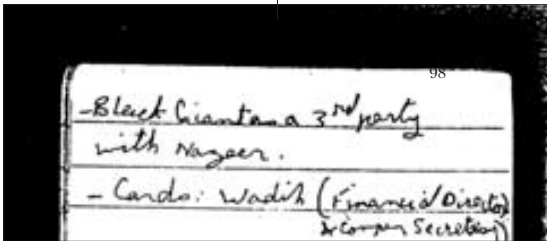 98
- Black Giant as a 3rd party
with Nazeer.
- Cards: Wadih (Financial Director
& Compan Secretary)